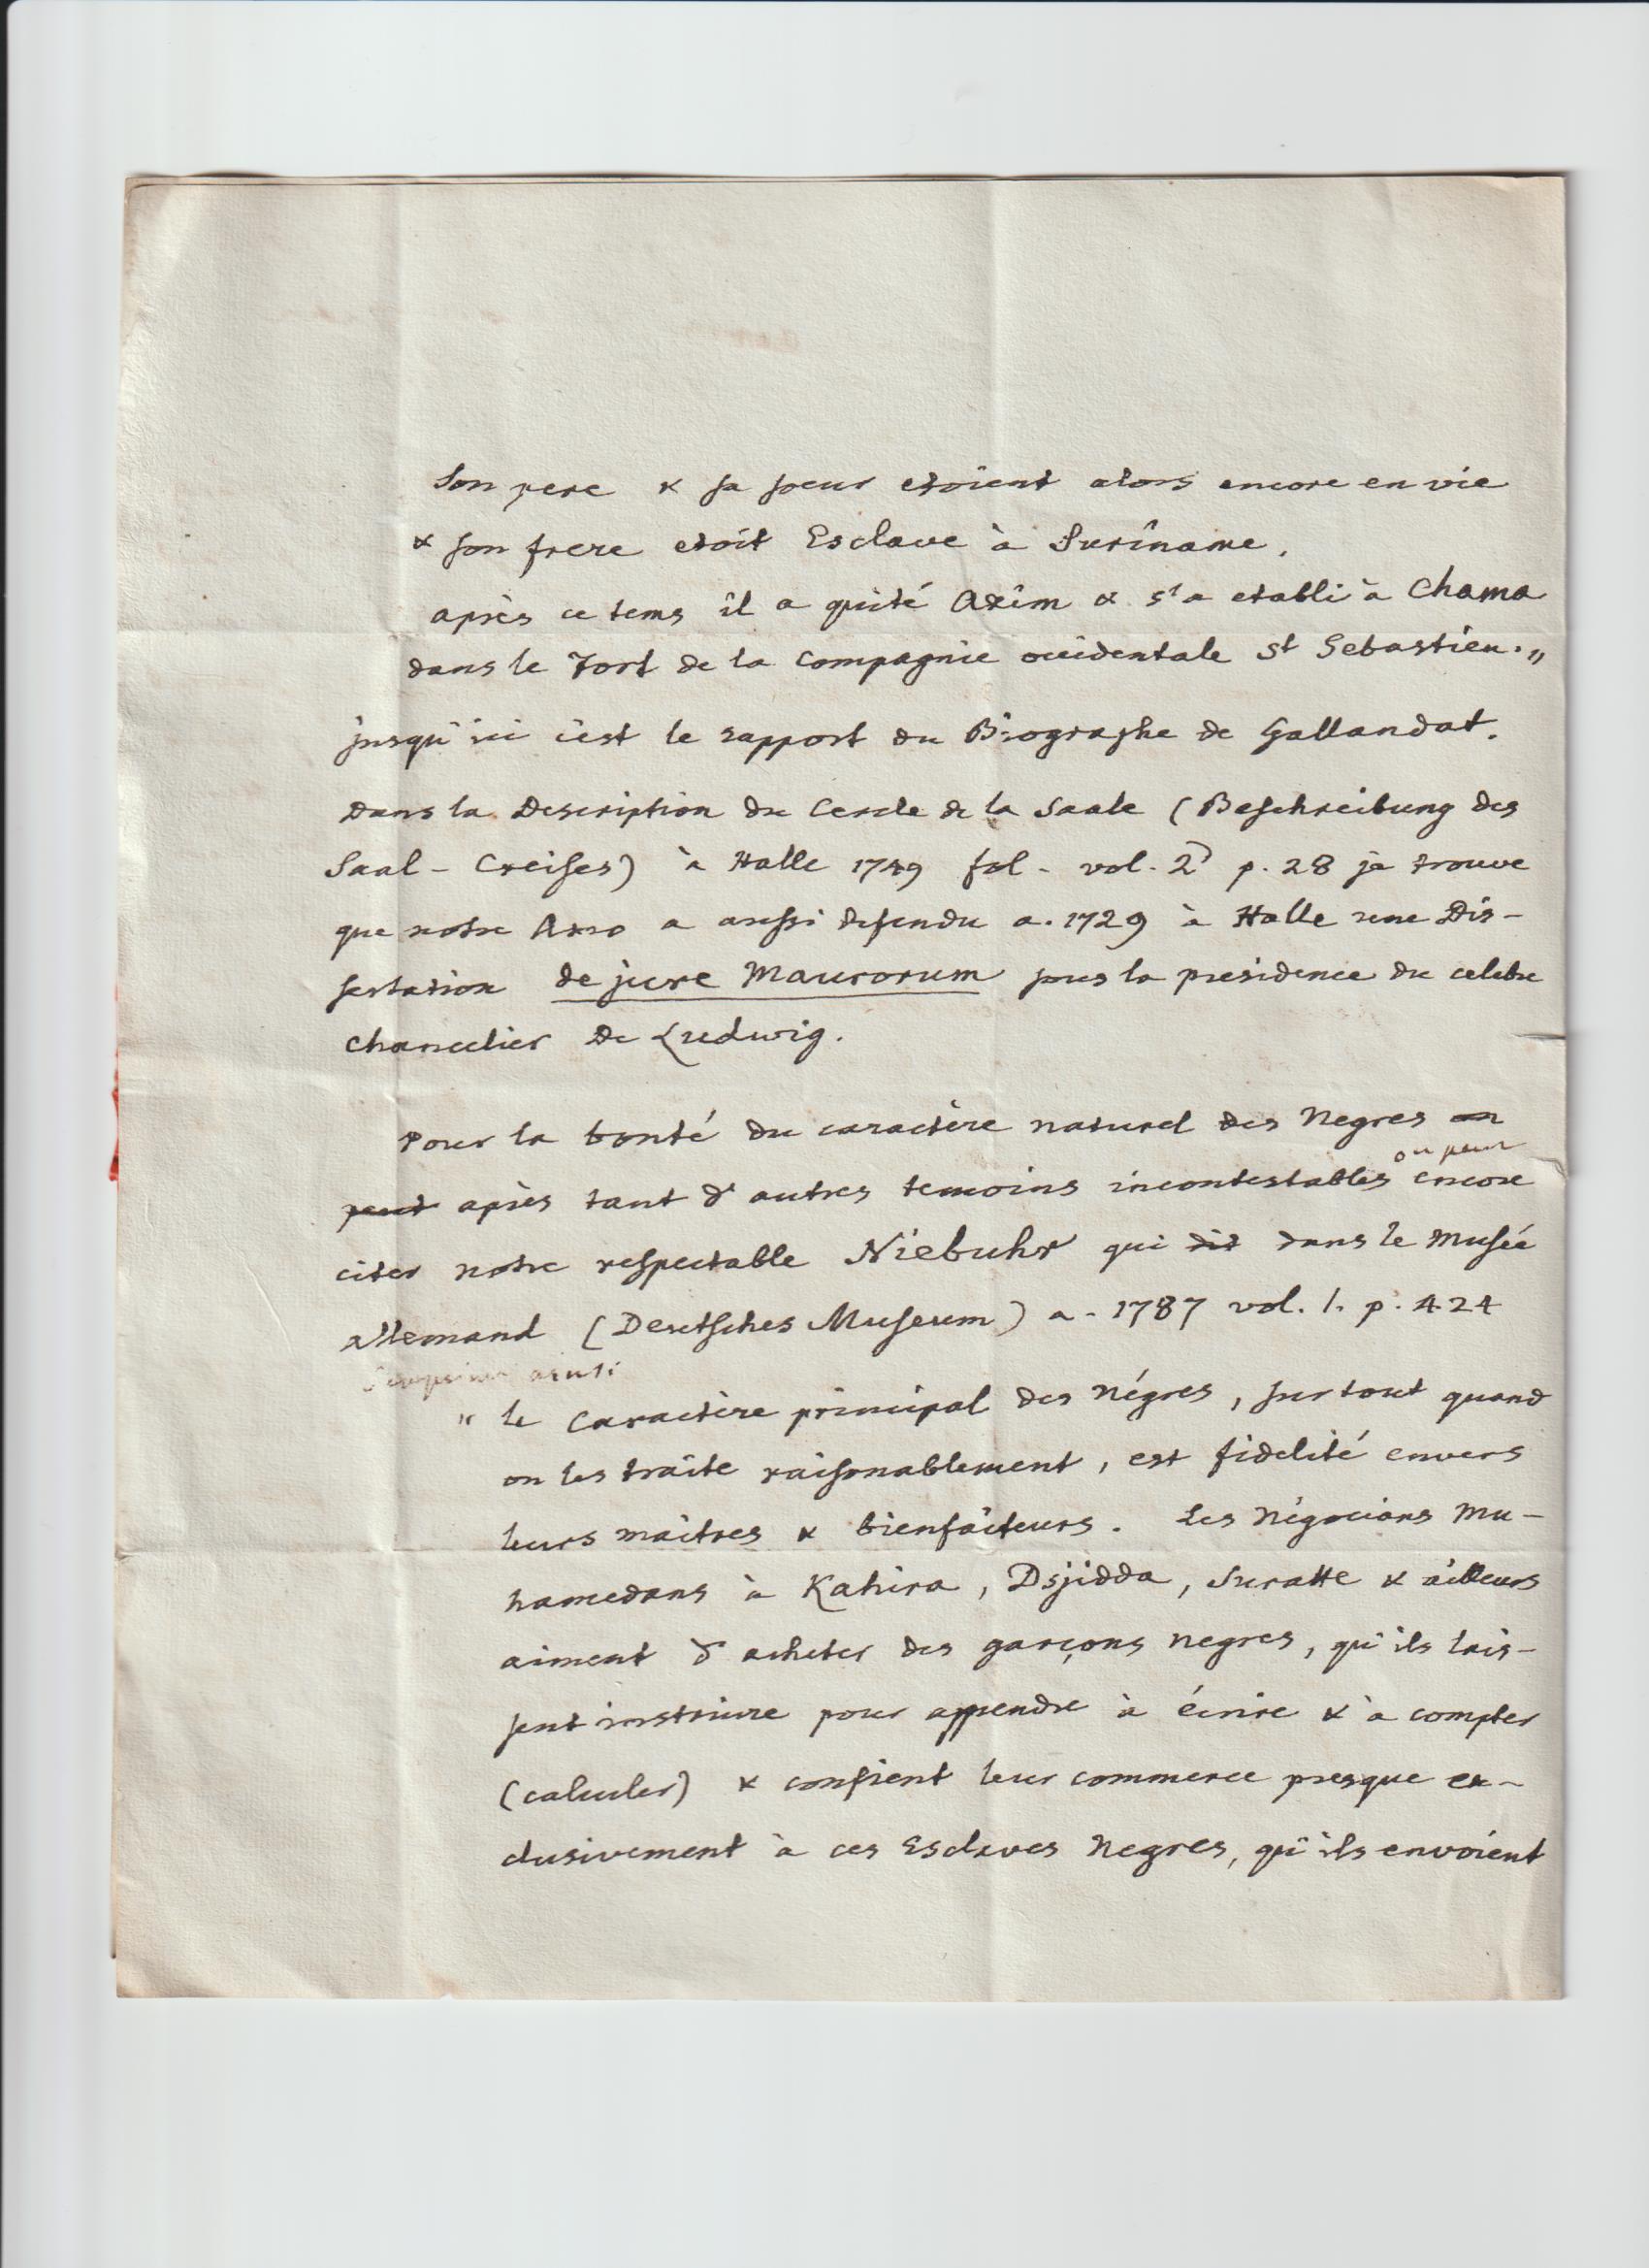 Son pere & sa soeur etoient alors encore en vie
& son frere etoit Esclave à Suriname.
après ce tems il a quité Axim & s'a etabli à Chama
dans le Fort de la Compagnie occidentale St Sebastien."
jusqu'ici c'est le rapport du Biographe de Gallandat.
Dans la Description du Cercle de la Saale (Beschreibung des
Saal-Creises) à Halle 1749 fol. vol. 2 p. 28 je trouve
que notre Amo a aussi defendu a. 1729 à Halle une Dis-
sertation de jure Maurorum sous la presidence du celebre
Chancelier de Ludwig.
Pour la bonté du caractère naturel des Negres on
on peut
peut après tant d'autres temoins incontestables encore
citer notre respectable Niebuhr qui dit dans le Musée
allemand (Deutsches Museum) a. 1787 vol. 1. p. 424
s'exprime ainsi
" le Caractère principal des Négres, surtout quand
on les traite raisonablement, est fidelité envers
leurs maîtres & bienfaiteurs. Les Négocians Mu-
hamedans à Kahira, Dsjidda, Suratte & ailleurs
aiment d'acheter des garçons negres, qu'ils lais-
sent instruire pour apprendre à écrire & à compter
(calculer) & confient leur commerce presque ex-
clusivement à ces Esclaves Negres, qu'ils envoient